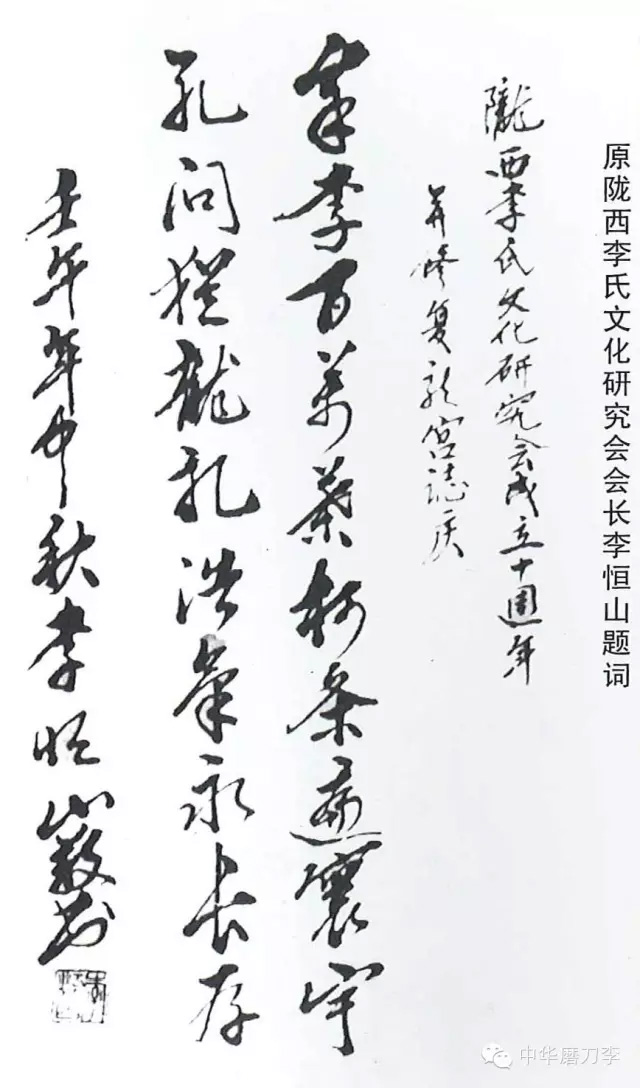 原陇西李氏文化研究会会长李恒山题词
隴西李氏文化研究会成立十週年
并修复龙宫誌庆
李百萬葉柯条遍寰宇
孔问猶龍礼浩氣永长存
壬午年中秋李恒山敬书
中华磨刀李